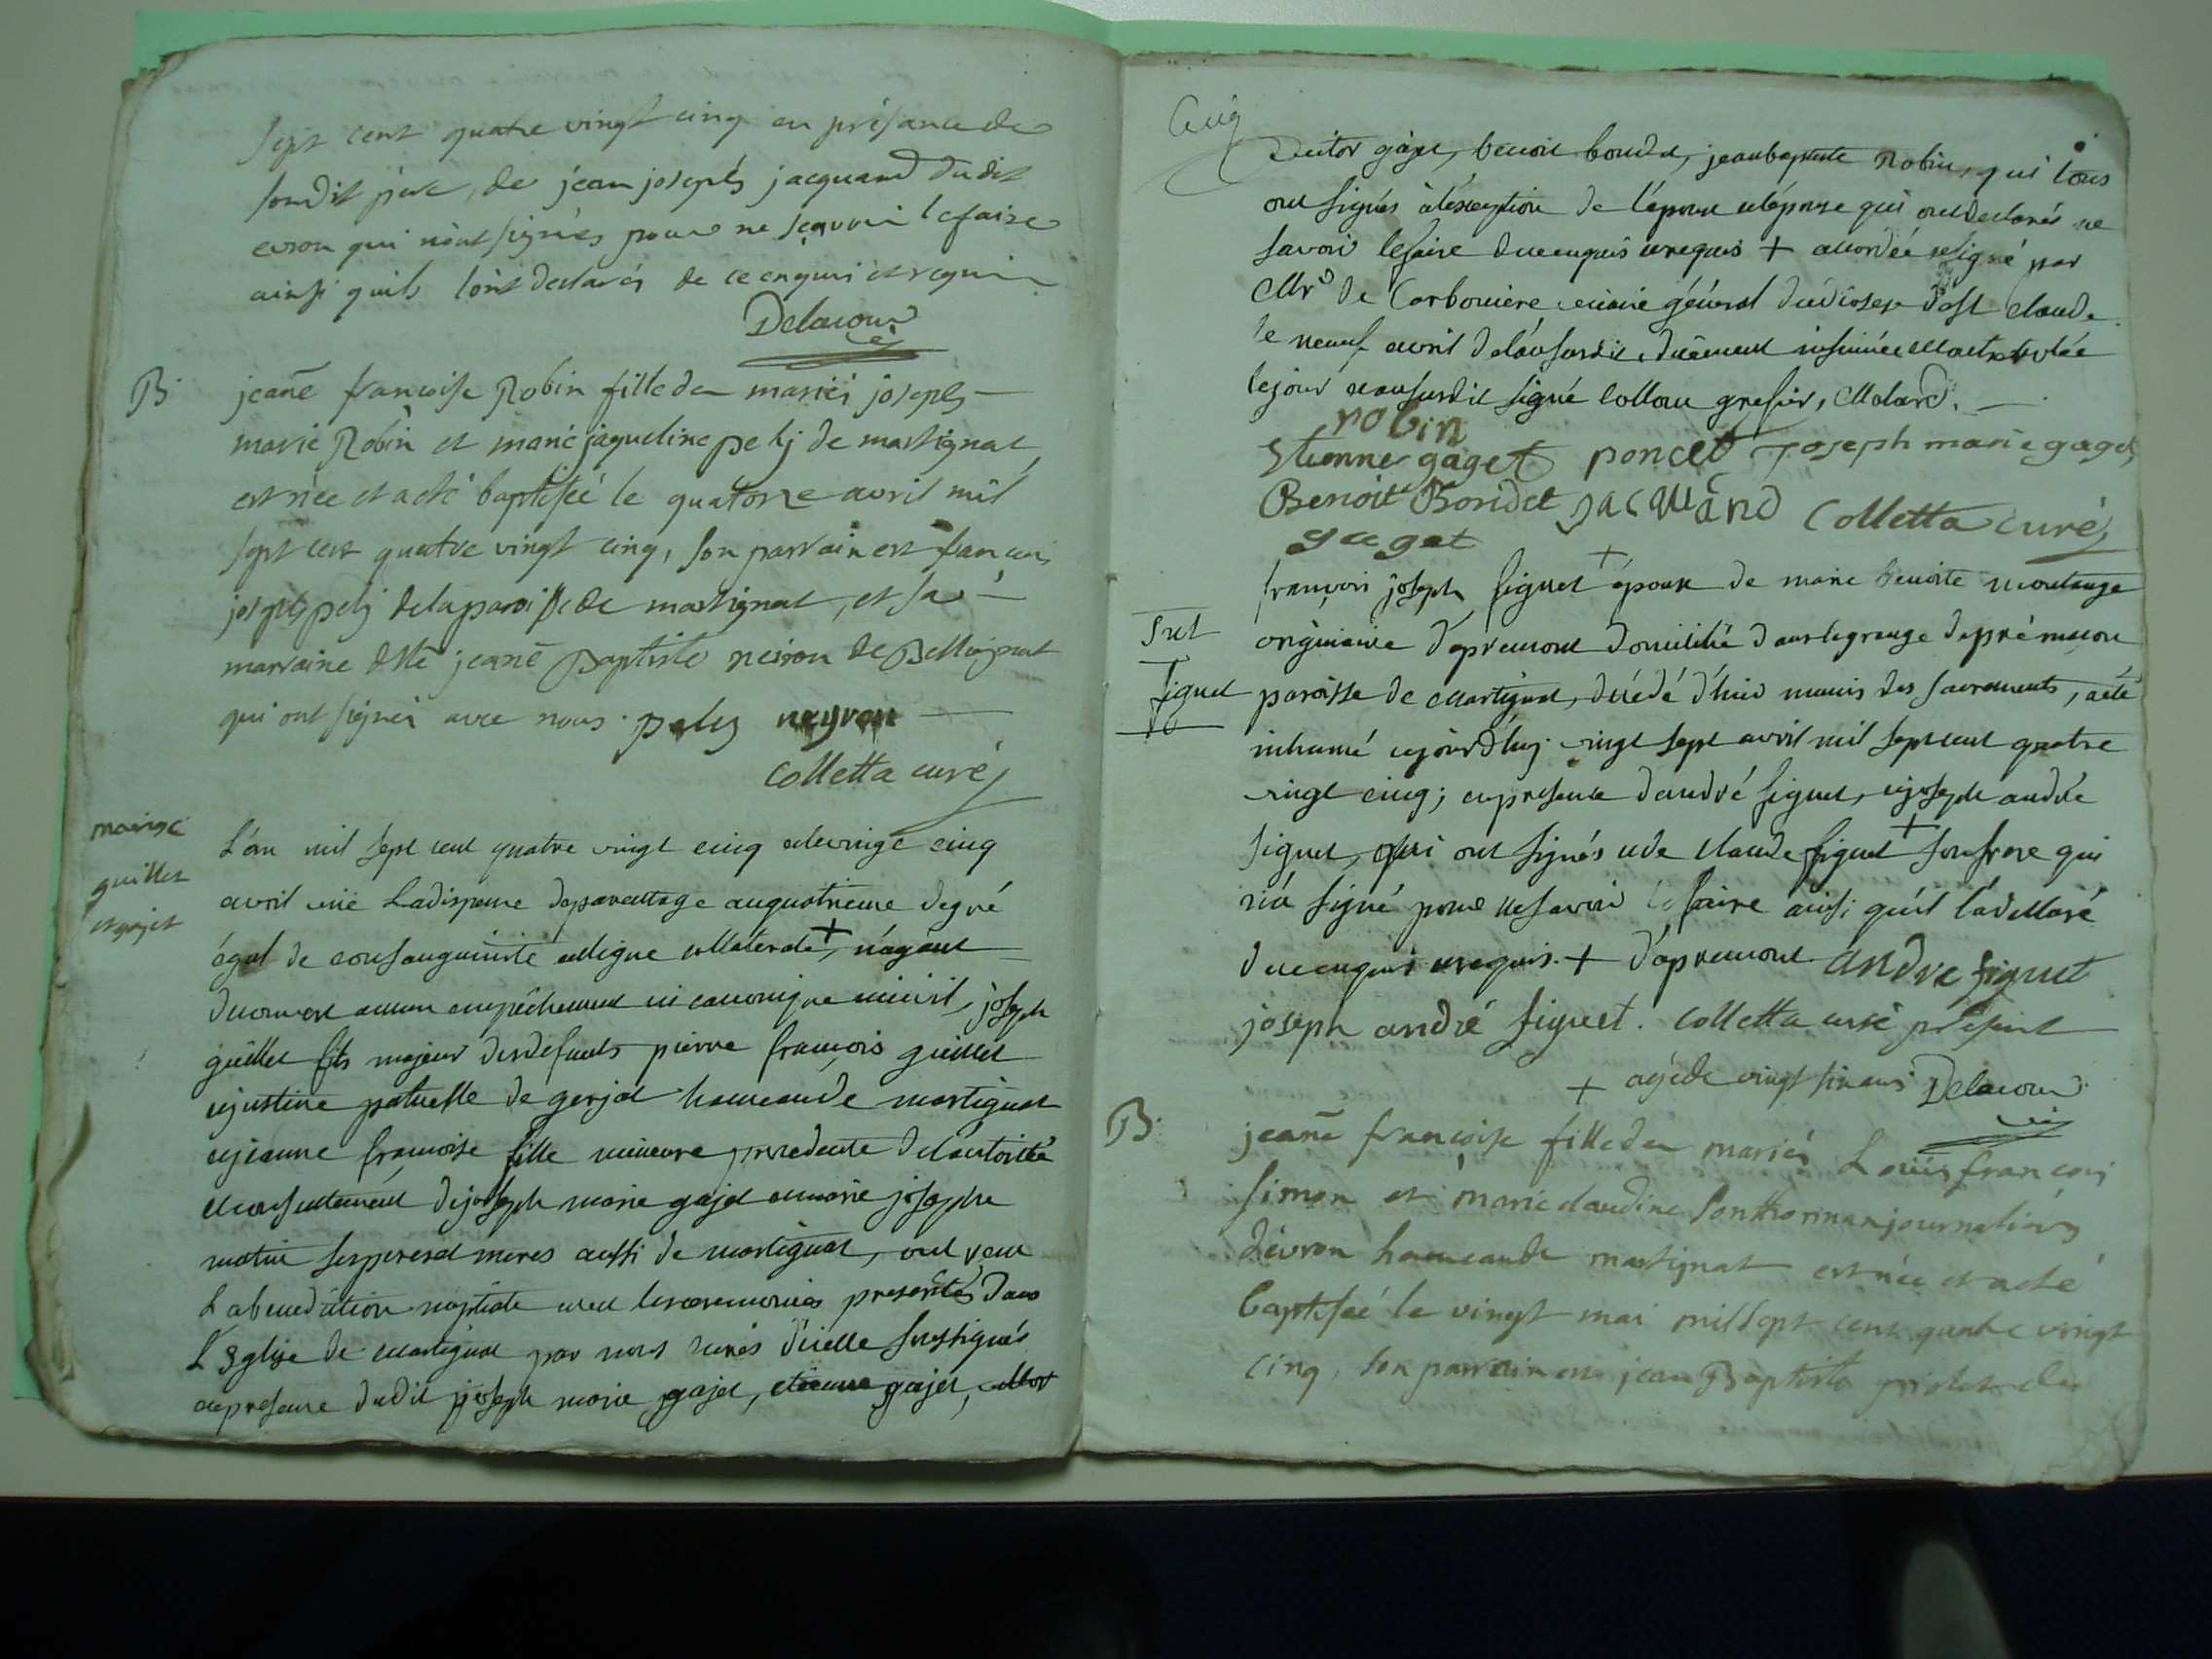 sept cent quatre vingt cinq en présance de
son dit père, de jean joseph jacquand dudit
evron qui n'ont signés pour ne sçavoir le faire
ainsi quils l'ont declarés de ce enquis et requis
Delacour
B. jeane francoise Robin fille des mariés joseph
marie Robin et marie jaqueline de martignat
est née et a eté baptisée le quatorze avril mil
sept cent quatre vingt cinq, son parrain est francois
joseph de la paroisse de martignat, et sa
marraine dlle jeane Baptiste neiron de Bellignat
qui ont signés avec nous. neyron
Colletta curé
mariage
guillet
et gajet
L'an mil sept cent quatre vingt cinq et le vingt cinq
avril vüe La dispense de parentage au quatrieme degré
égal de consanguinité en ligne collaterale + n'ayant
decouvert aucun empêchement ni canonique ni civil, joseph
guillet fils majeur des defunts pierre françois guillet
et justine de hameau de martignat
et jeanne francoise fille mineure procedente de l'autorité
et consentement de joseph marie gajet et marie josephe
ses pere et meres aussi de martignat, ont reçu
La benediction nuptiale avec les ceremonies dans
L'Eglise de Martignat par nous curés d'icelle soussignés
en presence dudit joseph marie gajet, etienne gajet,
Cinq
gajet, benoit bondet, jean baptiste Robin, qui tous
ont signés à l'exception de l'epoux et l'épouse qui ont declarés ne
savoir le faire de ce enquis et requis + accordée et signé par
Mr de Carbonniere vicaire général du diocese de St Claude
le neuf avril de l'an susdit, duëment insinuée et controlée
le jour et an susdit signé grefier, Molard.
robin
Etienne gaget poncet joseph marie gaget
Benoit Bondet jacquand Colletta curé
gaget
Set
Siguet
françois joseph Siguet + époux de marie benoite
originaire d'apremont domicilié dans la grange de
paroisse de Martignat, décédé d'hier munis des sacrements, a été
inhumé cejourd'huy vingt sept avril mil sept cent quatre
vingt cinq; en presence d'andré Siguet, et joseph andré
Siguet, qui ont signés et de claude Siguet + son frere qui
n'a signé pour ne savoir le faire ainsi qu'il l'a declaré
de ce enquis et requis. + d'apremont andre Siguet
joseph andré Siguet. Colletta curé présent
+ agé de vingt six ans Delacour
B. jeane francoise fille des mariés Louis francois
Simon et marie claudine journaliers
d'evron hameau de martignat est née et a eté
baptisée le vingt mai mil sept cent quatre vingt
cinq, son parrain est jean Baptiste